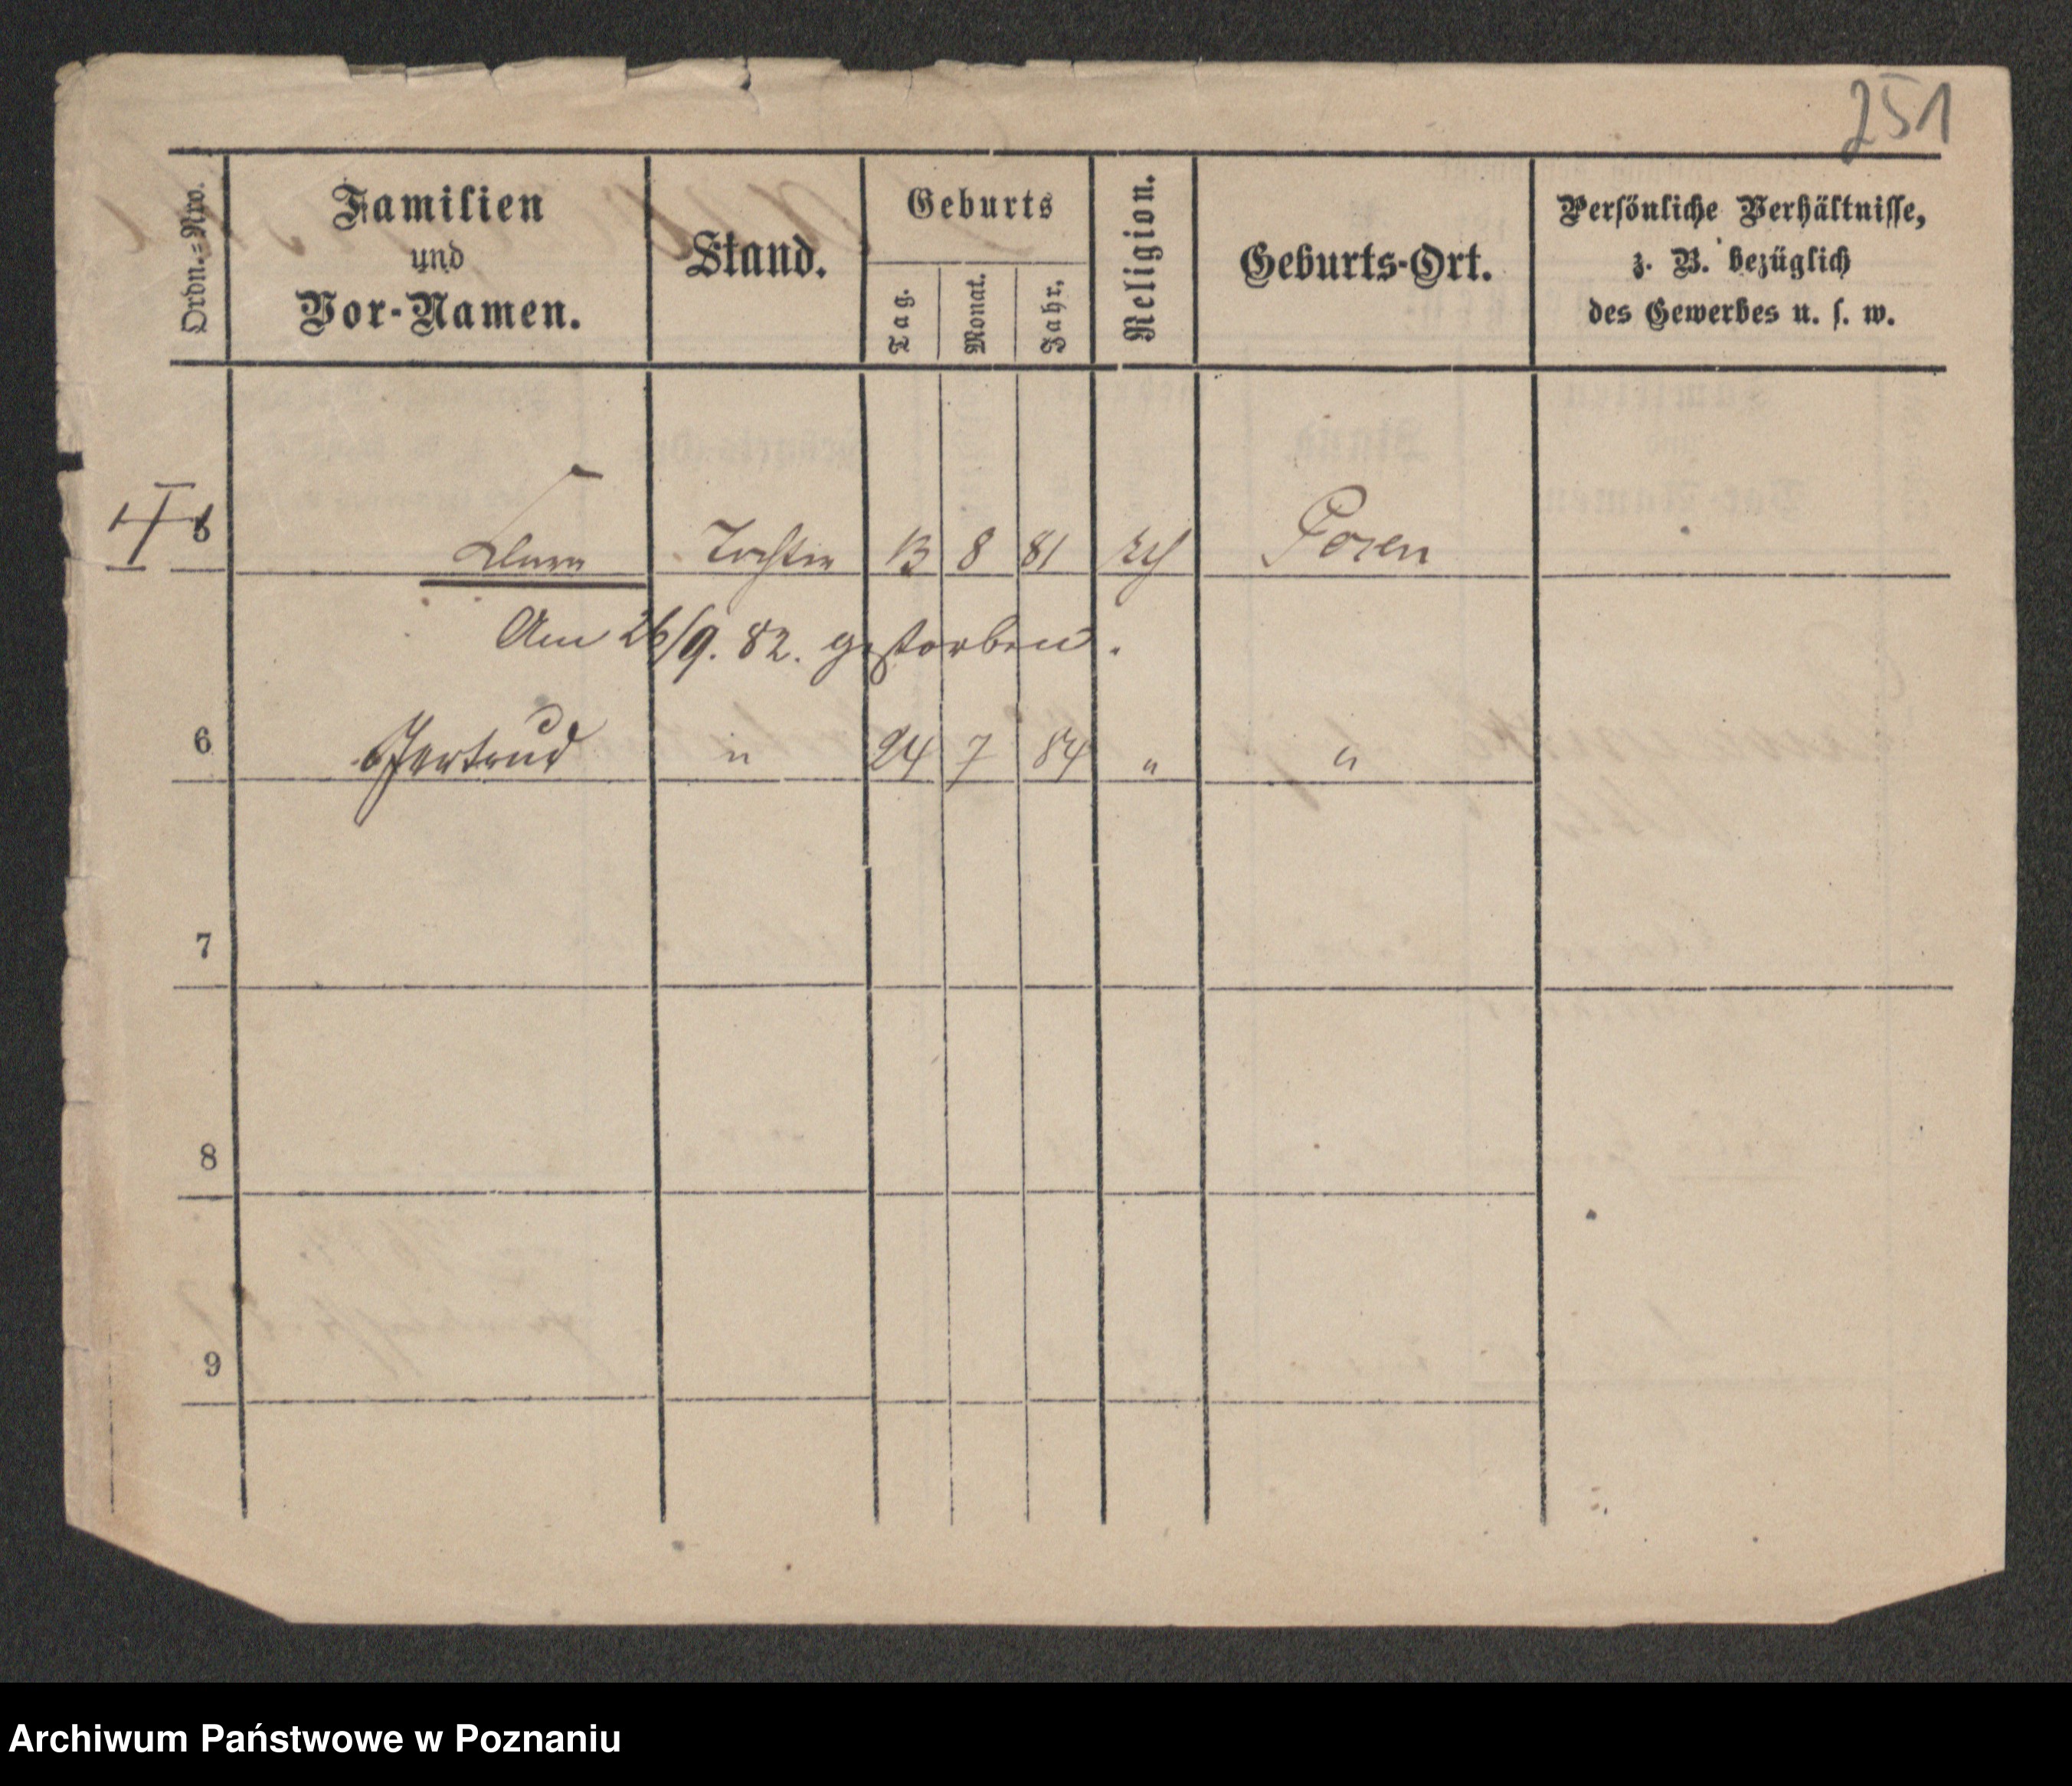 251
Ordn.=Nro.
Familien
und
Vor-Namen.
Stand.
Geburts
Tag.
Monat.
Jahr.
Religion.
Geburts-Ort.
Persönliche Verhältnisse,
z. B. bezüglich
des Gewerbes u. s. w.
5 Tochter 13 8 81 Posen
Am 26/9. 82. gestorben.
6 Gertrud " 24 7 84 " "
7
8
9
Archiwum Państwowe w Poznaniu